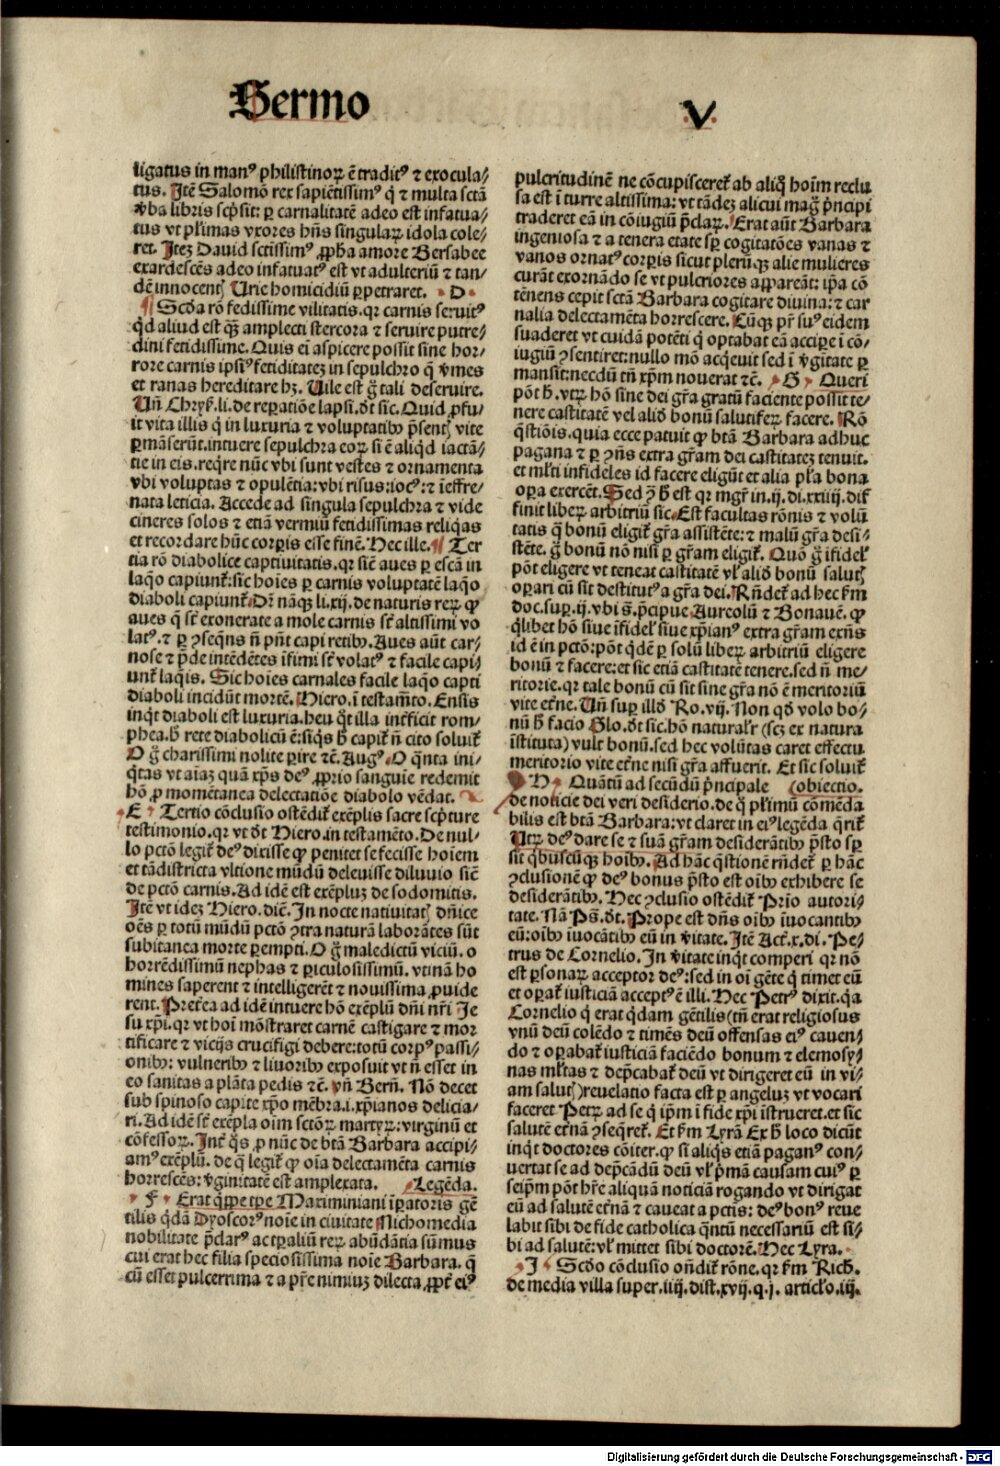 Sermo
V
ligatus in manꝰ philistinoꝝ ē traditꝰ ⁊ exocula⸗
tus. Itē Salomō rex sapiētissimꝰ q̇ ⁊ multa sctā
v̓ba libris scp̄sit: ꝑ carnalitatē adeo est infatua⸗
tus vt pl̓imas vxores hn̄s singulaꝝ idola cole⸗
ret. Itez Dauid sctissimꝰ ꝓpha amore Bersabee
exardescēs adeo infatuatꝰ est vt adulteriū ⁊ tan⸗
dē innocentꝭ Urie homicidiū ꝑpetraret. D
Scd̓a rō fedissime vilitatis. qr carnis seruitꝰ
qd̓ aliud est qꝫ amplecti stercora ⁊ seruire putre⸗
dini fetidissime. Quis eī aspicere possit sine hor⸗
rore carnis ipsiꝰ fetiditatez in sepulchro q̇ v̓mes
et ranas hereditare hꝫ. Uile est g̊ tali deseruire.
Un̄ Chrys. li. de reꝑatiōe lapsi. dt̄ sic. Quid ꝓfu⸗
it vita illis q̇ in luxuria ⁊ voluptatibꝰ p̄sentꝭ vite
ꝑmāserūt. intuere sepulchra eoꝝ si ē aliqd̓ iactā⸗
tie in eis. reqre nūc vbi sunt vestes ⁊ ornamenta
vbi voluptas ⁊ opulētia: vbi risus: iocꝰ: ⁊ īeffre⸗
nata leticia. Accede ad singula sepulchra ⁊ vide
cineres solos ⁊ etiā vermiū fetidissimas reliq̄as
et recordare hūc corꝑis esse finē. Hec ille. Ter
tia rō diabolice captiuitatis. qr sicē aues ꝑ escā in
laq̇o capiunt̄: sic hoies ꝑ carnis voluptatē laq̇o
diaboli capiunt̄. Dr̄ nāqꝫ li. xij. de naturis reꝝ ꝙ
aues q̄ st̄ exonerate a mole carnis st̄ altissimi vo
latꝰ. ⁊ ꝑ ꝯseqn̄s n̄ pn̄t capi retibꝰ. Aues aūt car⸗
nose ⁊ p̄de intēdētes īfimi st̄ volatꝰ ⁊ facile capi⸗
unt̄ laq̇is. Sic hoies carnales facile laq̇o capti
diaboli incidūt mortē. Hiero. ī testam̄to. Ensis
inq̇t diaboli est luxuria. heu q̇t illa int̄ficit rom⸗
phea. h̄ rete diabolicū ē: siq̇s h̄ capit̄ n̄ cito soluit̄
O g̊ charissimi nolite ꝑire ⁊c̄. Augꝰ. O q̄nta ini⸗
q̇tas vt aīaz quā xp̄s deꝰ ꝓprio sanguie redemit
hō ꝓ momētanea delectatiōe diabolo vēdat.
E Tertio cōclusio ostēdit̄ exēplis sacre scp̄ture
testimonio. qr vt dt̄ Hiero. in testamēto. De nul⸗
lo pctō legit̄ deꝰ dixisse ꝙ penitet se fecisse hoiem
et tā districta vltione mūdū deleuisse diluuio sicē
de pctō carnis. Ad idē est exēpluz de sodomitis.
Itē vt idez Hiero. dic̄. In nocte natiuitatꝭ dn̄ice
oēs ꝑ totū mūdū pctō ꝯtra naturā laborātes sūt
subitanea morte ꝑempti. O g̊ maledictū viciū. o
horrēdissimū nephas ⁊ ꝑiculosissimū. vtinā ho
mines saperent ⁊ intelligerēt ⁊ nouissima ꝓuide
rent. Pret̄ea ad idē intuere hō exēplū dn̄i nr̄i Je
su xp̄i. qr vt hoī mōstraret carnē castigare ⁊ mor
tificare ⁊ vicijs crucifigi debere: totū corpꝰ passi⸗
onibꝰ: vulneribꝰ ⁊ liuoribꝰ exposuit vt n̄ esset in
eo sanitas a plāta pedis ⁊c̄. vn̄ Bern̄. Nō decet
sub spinoso capite xp̄o mēbra. i. xp̄ianos delicia⸗
ri. Ad idē st̄ exēpla oīm sctōꝝ martyꝝ: virginū et
cōfessoꝝ. Int̄ q̄s ꝓ nūc de btā Barbara accipi⸗
amꝰ exēplū. de q̄ legit̄ ꝙ oīa delectamēta carnis
horrescēs: v̓ginitatē est amplexata. Legēda.
F Erat q̇ppe tꝑe Maximiniani īꝑatoris gē
tilis q̇dā Dyoscorꝰ noīe in ciuitate Nichomedia
nobilitate p̄clarꝰ ac tꝑaliū reꝝ abūdātia sūmus
cui erat hec filia speciosissima noīe Barbara. q̄
cū esset pulcerrima ⁊ a pr̄e nimiuz dilecta. ꝓpt̄ eiꝰ
pulcritudinē ne cōcupisceret̄ ab aliq̊ hoīm reclu
sa est ī turre altissima: vt tādez alicui mag̊ p̄ncipi
traderet eā in cōiugiū p̄claꝝ. Erat aūt Barbara
ingeniosa ⁊ a tenera etate sꝑ cogitatōes vanas ⁊
vanos ornatꝰ corꝑis sicut pleruꝫqꝫ alie mulieres
curāt exornādo se vt pulcriores appareāt: ip̄a cō
tēnens cepit sctā Barbara cogitare diuina: ⁊ car
nalia delectamēta horrescere. Cūqꝫ pr̄ suꝰ eidem
suaderet vt cuidā potēti q̇ optabat eā accipe ī cō⸗
iugiū ꝯsentiret: nullo mō acq̇euit sed ī v̓gitate ꝑ
mansit: necdū tn̄ xp̄m nouerat ⁊c̄. G Querī
pōt h̄. vtꝝ hō sine dei gr̄a gratū faciente possit te⸗
nere castitatē vel aliud bonū salutifeꝝ facere. Rō
q̄stiōis. quia ecce patuit ꝙ btā Barbara adhuc
pagana ⁊ ꝑ ꝯn̄s extra gr̄am dei castitatez tenuit.
et ml̓ti infideles id facere eligūt et alia pl̓a bona
oꝑa exercēt. Sed ꝯ h̄ est qr mgr̄ in. ij. di. xxiiij. dif̄
finit libeꝝ arbitriū sic. Est facultas rōnis ⁊ volū
tatis q̄ bonū eligit̄ gr̄a assistēte: ⁊ malū gr̄a desi⸗
stēte. g̊ bonū nō nisi ꝑ gr̄am eligit̄. Quō g̊ īfidel̓
pōt eligere vt teneat castitatē vl̓ aliud bonū salutꝭ
oꝑari cū sit destitutꝰ a gr̄a dei. Rn̄det̄ ad hec ẜm
doc. suꝑ. ij. vbi s̄. p̄cipue Aureolū ⁊ Bonauē. ꝙ
q̇libet hō siue īfidel̓ siue xp̄ianꝰ extra gr̄am exn̄s
id ē in pctō: pōt q̇dē ꝑ solū libeꝝ arbitriū eligere
bonū ⁊ facere: et sic etiā castitatē tenere. sed n̄ me⸗
ritorie. qr tale bonū cū sit sine gr̄a nō ē meritoriū
vite et̄ne. Un̄ suꝑ illd̓ Ro. vij. Non qd̓ volo bo⸗
nū h̄ facio Glo. dt̄ sic. hō natural̓r (scꝫ ex natura
īstituta) vult bonū. sed hec volūtas caret effectu
meritorio vite et̄ne nisi gr̄a affuerit. Et sic soluit̄
H Quātū ad secūdū p̄ncipale (obiectio.
de noticie dei veri desiderio. de q̊ pl̓imū cōmēda
bilis est btā Barbara: vt claret in eiꝰ legēda q̄rit̄
Utꝝ deꝰ dare se ⁊ suā gr̄am desiderātibꝰ p̄sto sꝑ
sit q̇buscūqꝫ hoībꝰ. Ad hāc q̄stionē rn̄det̄ ꝑ hāc
ꝯclusionē ꝙ deꝰ bonus p̄sto est oībꝰ exhibere se
desiderātibꝰ. Hec ꝯclusio ostēdit̄ Prīo autori⸗
tate. Nā Ps̄. dt̄. Prope est dn̄s oībꝰ īuocantibꝰ
eū: oībꝰ īuocātibꝰ eū in v̓itate. Itē Act̄. x. di. Pe⸗
trus de Cornelio. In v̓itate inq̇t comperi qr nō
est ꝑsonaꝝ acceptor deꝰ: sed in oī gēte q̇ timet eū
et oꝑat̄ iusticiā acceptꝰ ē illi. Hec Petrꝰ dixit. q̇a
Cornelio q̇ erat q̇dam gētilis (tn̄ erat religiosus
vnū deū colēdo ⁊ timēs deū offensas eiꝰ cauen⸗
do ⁊ oꝑabat̄ iusticiā faciēdo bonum ⁊ elemosy⸗
nas ml̓tas ⁊ dep̄cabat̄ deū vt dirigeret eū in vi⸗
am salutꝭ) reuelatio facta est ꝑ angeluz vt vocari
faceret Petꝝ ad se q̇ ip̄m ī fide xp̄i īstrueret. et sic
salutē et̄nā ꝯseq̄ret̄. Et ẜm Lyrā Ex h̄ loco dicūt
inq̇t doctores cōiter. ꝙ si aliq̇s etiā paganꝰ con⸗
uertat se ad dep̄cādū deū vl̓ p̄mā causam cuiꝰ ꝑ
seip̄m pōt hr̄e aliquā noticiā rogando vt dirigat
eū ad salutē et̄nā ⁊ caueat a pctis: deꝰ bonꝰ reue
labit sibi de fide catholica q̄ntū necessariū est si⸗
bi ad salutē: vl̓ mittet sibi doctorē. Hec Lyra.
J Scd̓o cōclusio on̄dit̄ rōne. qr ẜm Rich.
de media villa super. iiij. dist. xvij. q. j. articl̓o. iij.
Digitalisierung gefördert durch die Deutsche Forschungsgemeinschaft - DFG